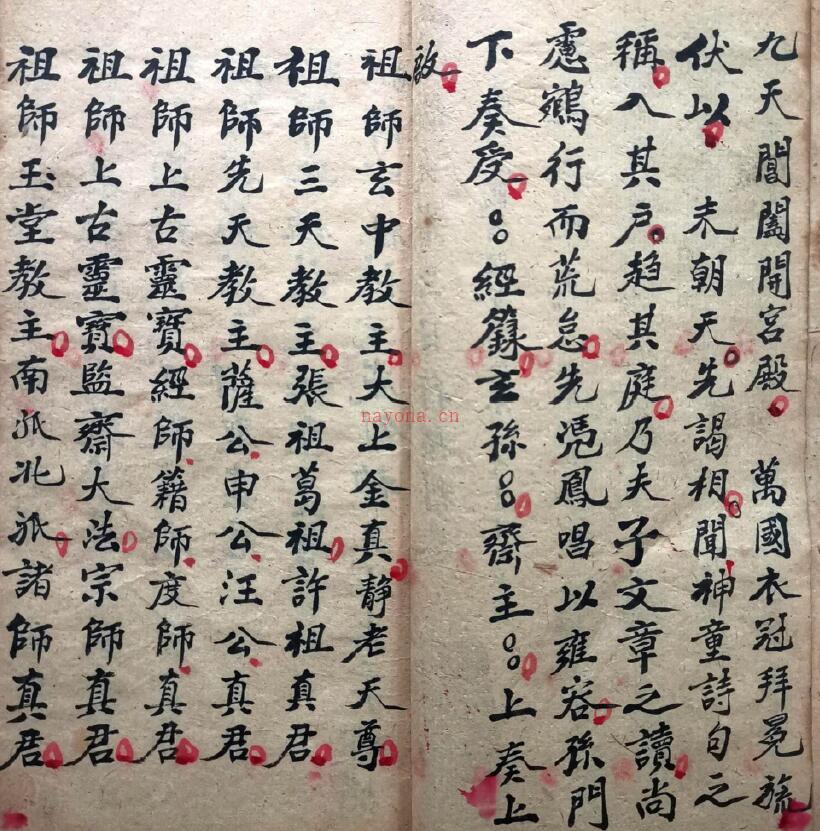 九天閶闔開宮殿 萬國衣冠拜冕旒
伏以 未朝天先謁相聞神童詩句之
稱入其戶趨其庭乃夫子文章之讀尚
慮鵷行而荒怠先凴鳳唱以雍容孫門
下奏受○○經籙玄孫○○齋主○○上奏上
啟
祖師玄中教主大上金真靜老天尊
祖師三天教主張祖葛祖許祖真君
祖師先天教主薩公申公汪公真君
祖師上古靈寶經師籍師度師真君
祖師上古靈寶監齋大法宗師真君
祖師玉堂教主南派北派諸師真君
nayona.cn